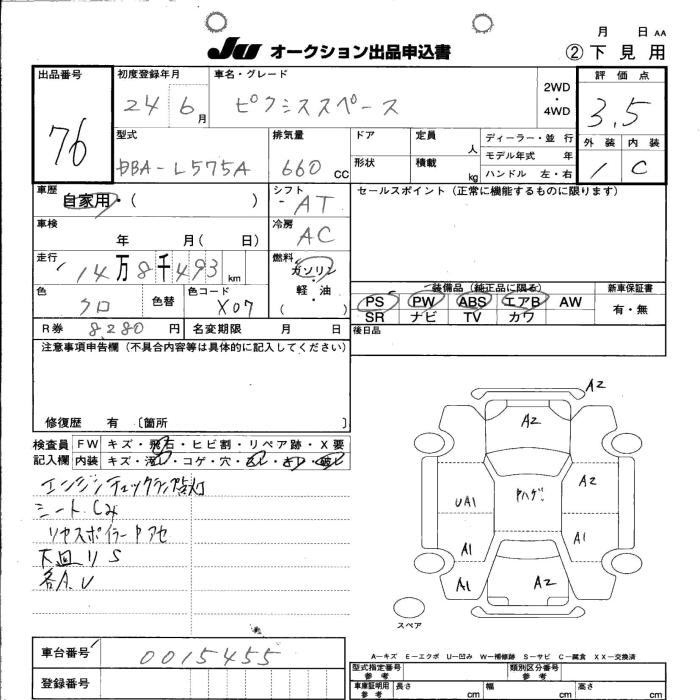 月 日 AA
JU オークション出品申込書 ②下見用
出品番号 76
初度登録年月 24 6月
車名・グレード ピクシススペース
2WD・4WD
評価点 3.5
外装 内装
1 C
型式 DBA-L575A
排気量 660 CC
ドア 定員 人
形状 積載 kg
ディーラー・並行
モデル年式 年
ハンドル 左・右
車歴 自家用・( )
シフト AT
セールスポイント(正常に機能するものに限ります)
車検 年 月( 日)
冷房 AC
走行 14万8千493 km
燃料 ガソリン・軽・油 ( )
色 クロ 色替 色コード X07
装備品(純正品に限る) 新車保証書
PS PW ABS エアB AW 有・無
SR ナビ TV カワ
R券 8280円 名変期限 月 日
後日品
注意事項申告欄(不具合内容等は具体的に記入してください)
修復歴 有〔箇所 〕
検査員 FW キズ・飛石・ヒビ割・リペア跡・X要
記入欄 内装 キズ・汚レ・コゲ・穴・
エンジンチェックランプ点灯
シート.Cみ
リヤスポイラーPアセ
下回り S
各A.U
A2
A2
A2
UA1
Pハゲ
A1
A1
A1
A2
スペア
車台番号 0015455
登録番号
A-キズ E-エクボ U-凹み W-補修跡 S-サビ C-腐食 XX-交換済
型式指定番号 参考 類別区分番号 参考
車庫証明用 参考 長さ cm 幅 cm 高さ cm